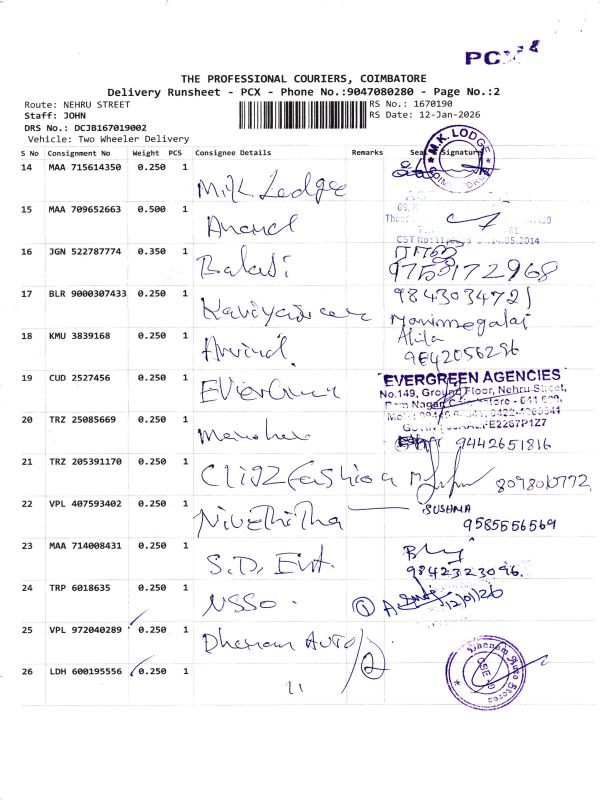 PCX
THE PROFESSIONAL COURIERS, COIMBATORE
Delivery Runsheet - PCX - Phone No.:9047080280 - Page No.:2
Route: NEHRU STREET
RS No.: 1670190
Staff: JOHN
RS Date: 12-Jan-2026
DRS No.: DCJB167019002
Vehicle: Two Wheeler Delivery
S No Consignment No Weight PCS Consignee Details Remarks Seal & Signature
M.K. LODGE
14 MAA 715614350 0.250 1 M.K Lodge
15 MAA 709652663 0.500 1 Anand
CST No: 14.05.2014
16 JGN 522787774 0.350 1 Balaji
9753172968
17 BLR 9000307433 0.250 1
9843034721
Manimegalai
18 KMU 3839168 0.250 1 Arvind
9842056296
19 CUD 2527456 0.250 1 Evergreen
EVERGREEN AGENCIES
No.149, Ground Floor, Nehru Street,
Ram Nagar, Coimbatore - 641 009.
20 TRZ 25085669 0.250 1 Manohar
9442651816
21 TRZ 205391170 0.250 1 Fashion
8098010772
22 VPL 407593402 0.250 1 Nivethitha
SUSHMA
9585556569
23 MAA 714008431 0.250 1 S.D. Ent
9842323096
24 TRP 6018635 0.250 1 NSSO
1 12/01/26
25 VPL 972040289 0.250 1 Dhanam Auto
2
26 LDH 600195556 0.250 1 11
Dhanam Auto Stores